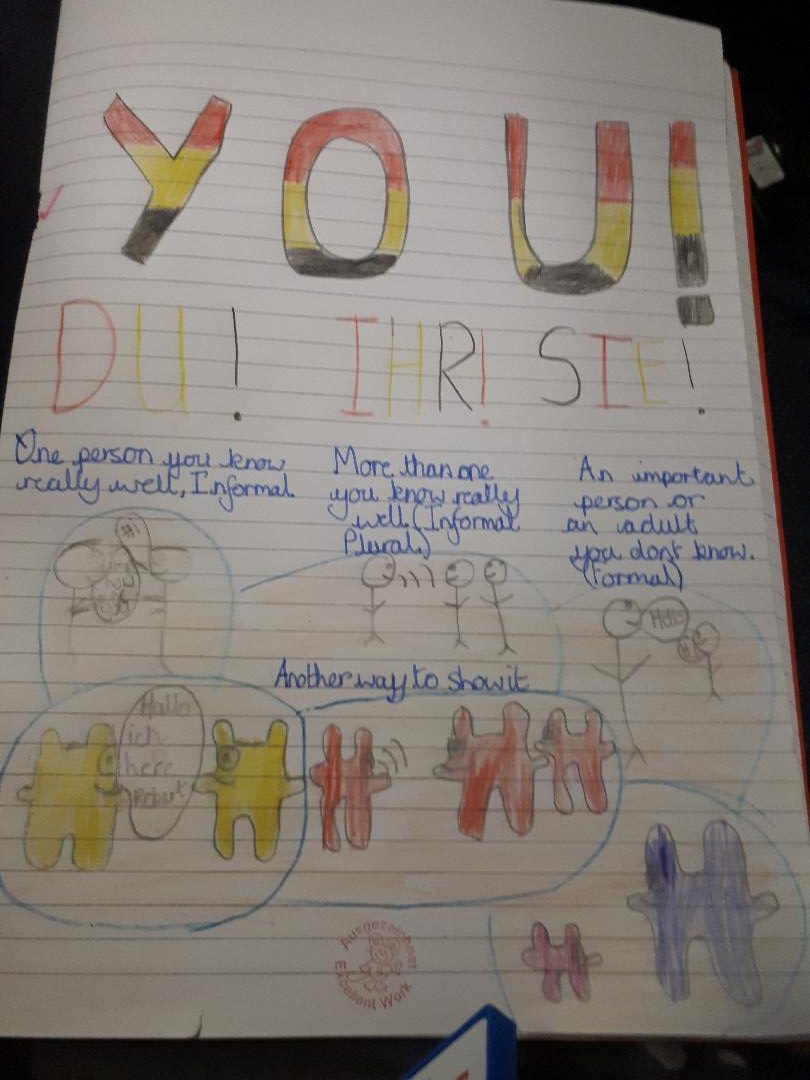 YOU!
DU! IHR! SIE!
One person you know
really well, Informal.
More than one
you know really
well. (Informal
Plural)
An important
person or
an adult
you dont know.
(Formal)
Hello
Another way to show it
Hallo
ich
here
Robert
Ausgezeichnet
Excellent Work